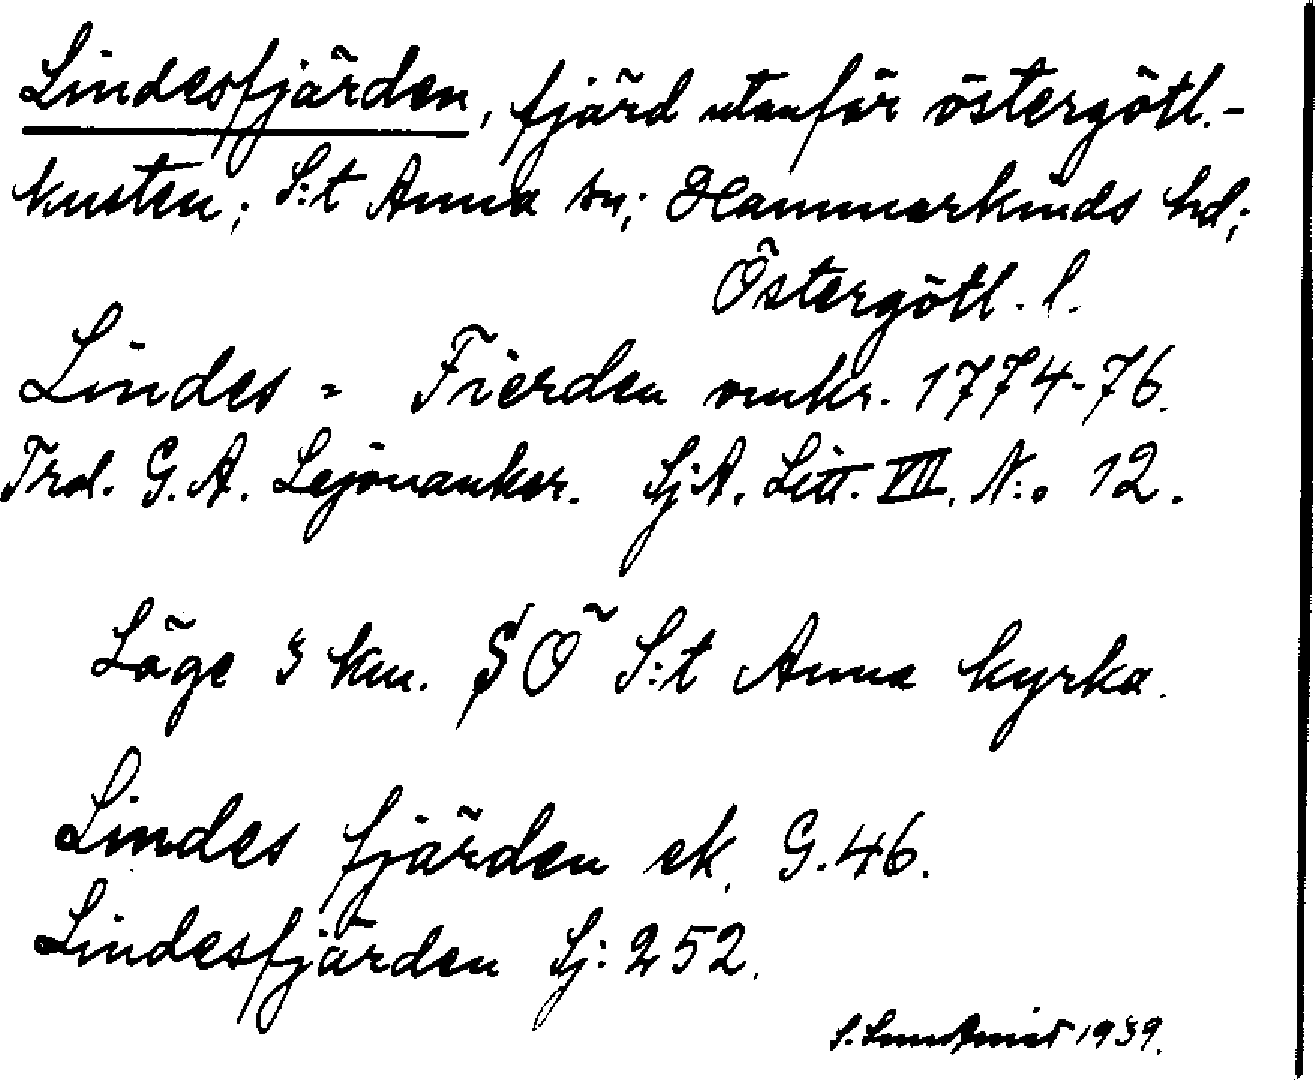 Lindesfjärden, fjärd utanför östergötl.-
kusten; S:t Anna sn; Hammarkinds hd;
Östergötl. l.
Lindes = Fierden omkr. 1774-76.
Trol. G. A. Lejonanker. Sj.A. Litt. VII. N:o 12.
Läge 3 km. SÖ S:t Anna kyrka.
Lindes fjärden ek. G. 46.
Lindesfjärden Sj: 252.
1939.